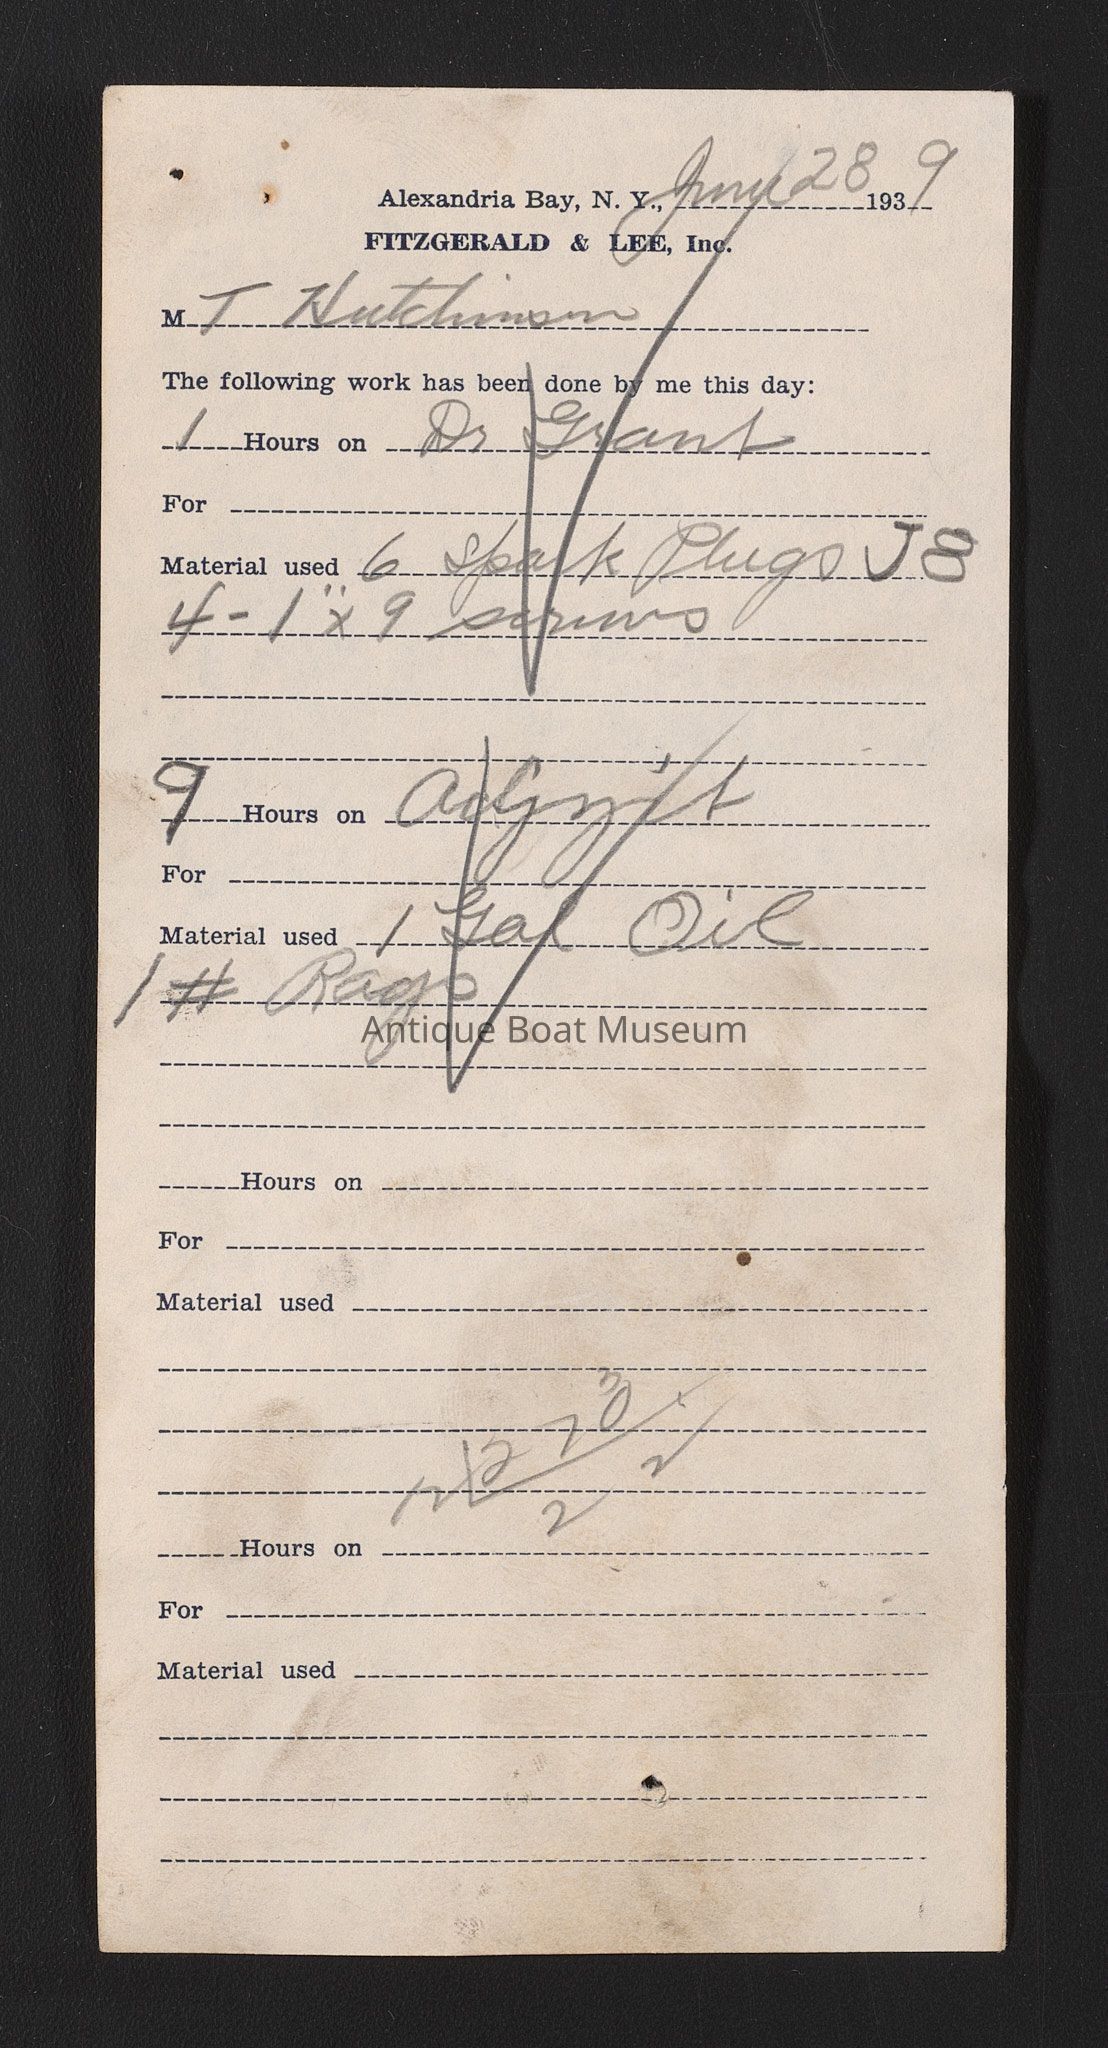 Alexandria Bay, N. Y., June 28 1939
FITZGERALD & LEE, Inc.
M T Hutchinson
The following work has been done by me this day:
1 Hours on Dr Grant
For
Material used 6 Spark Plugs J8
4 - 1" x 9 screws
9 Hours on
For
Material used 1 Gal Oil
1 # Rags
Antique Boat Museum
Hours on
For
Material used
Hours on
For
Material used